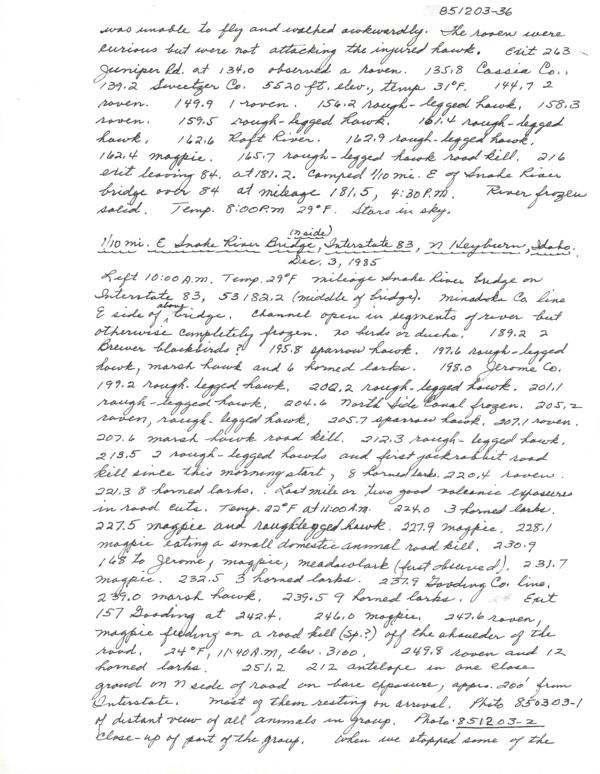 851203-36
was unable to fly and walked awkwardly. The raven were
curious but were not attacking the injured hawk. Exit 263
Juniper Rd. at 134.0 observed a raven. 135.8 Cassia Co.,
139.2 Sweetzer Co. 5520 ft. elev., temp 31°F. 144.7 2
raven. 149.9 1 raven. 156.2 rough-legged hawk, 158.3
raven. 159.5 rough-legged hawk. 161.4 rough-legged
hawk. 162.6 Raft River. 162.9 rough-legged hawk.
162.4 magpie. 165.7 rough-legged hawk road kill. 216
exit leaving 84. at 181.2. Camped 1/10 mi. E of Snake River
bridge over 84 at mileage 181.5, 4:30 P.M. River frozen
solid. Temp. 8:00 P.M 29°F. Stars in sky.
(N side)
1/10 mi. E Snake River Bridge, Interstate 83, N Heyburn, Idaho.
Dec. 3, 1985
Left 10:00 A.M. Temp. 29°F mileage Snake River bridge on
Interstate 83, 53182.2 (middle of bridge). Minidoka Co line
E side of above bridge. Channel open in segments of river but
otherwise completely frozen. No birds or ducks. 189.2 2
Brewer blackbirds? 195.8 sparrow hawk. 197.6 rough-legged
hawk, marsh hawk and 6 horned larks. 198.0 Jerome Co.
199.2 rough-legged hawk. 202.2 rough-legged hawk. 201.1
rough-legged hawk, 204.6 North Side Canal frozen. 205.2
raven, rough-legged hawk, 205.7 sparrow hawk. 207.1 raven.
207.6 marsh hawk road kill. 212.3 rough-legged hawk.
213.5 2 rough-legged hawks and first jackrabbit road
kill since this morning start, 8 horned larks. 220.4 raven.
221.3 8 horned larks. Last mile or two good volcanic exposures
in road cuts. Temp. 22°F at 11:00 A.M. 224.0 3 horned larks.
227.5 magpie and roughlegged hawk. 227.9 magpie. 228.1
magpie eating a small domestic animal road kill. 230.9
168 to Jerome, magpie, meadowlark (first observed). 231.7
magpie. 232.5 3 horned larks. 237.9 Gooding Co. line.
239.0 marsh hawk. 239.5 9 horned larks. Exit
157 Gooding at 242.4. 246.0 magpie. 247.6 raven,
magpie feeding on a road kill (Sp.?) off the shoulder of the
road. 24°F, 11:40 A.M, elev. 3100. 249.8 raven and 12
horned larks. 251.2 212 antelope in one close
group on N side of road on bare exposure, appro. 200' from
Interstate. Most of them resting on arrival. Photo 850303-1
of distant view of all animals in group. Photo 851203-2
close-up of part of the group. When we stopped some of the